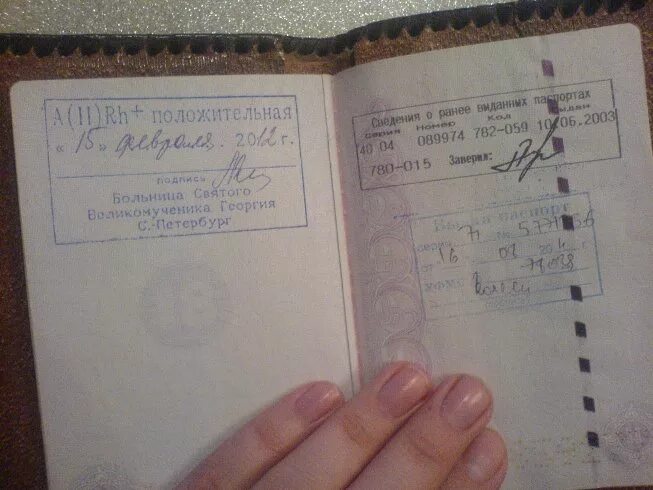 А(II)Rh+ положительная
«15» февраля. 2012 г.
подпись
Больница Святого
Великомученика Георгия
С.-Петербург
Сведения о ранее выданных паспортах
серия Номер Код выдан
40 04 089974 782-059 10.06.2003
780-015 Заверил:
Выдан паспорт
серия 71 №
от 16 08